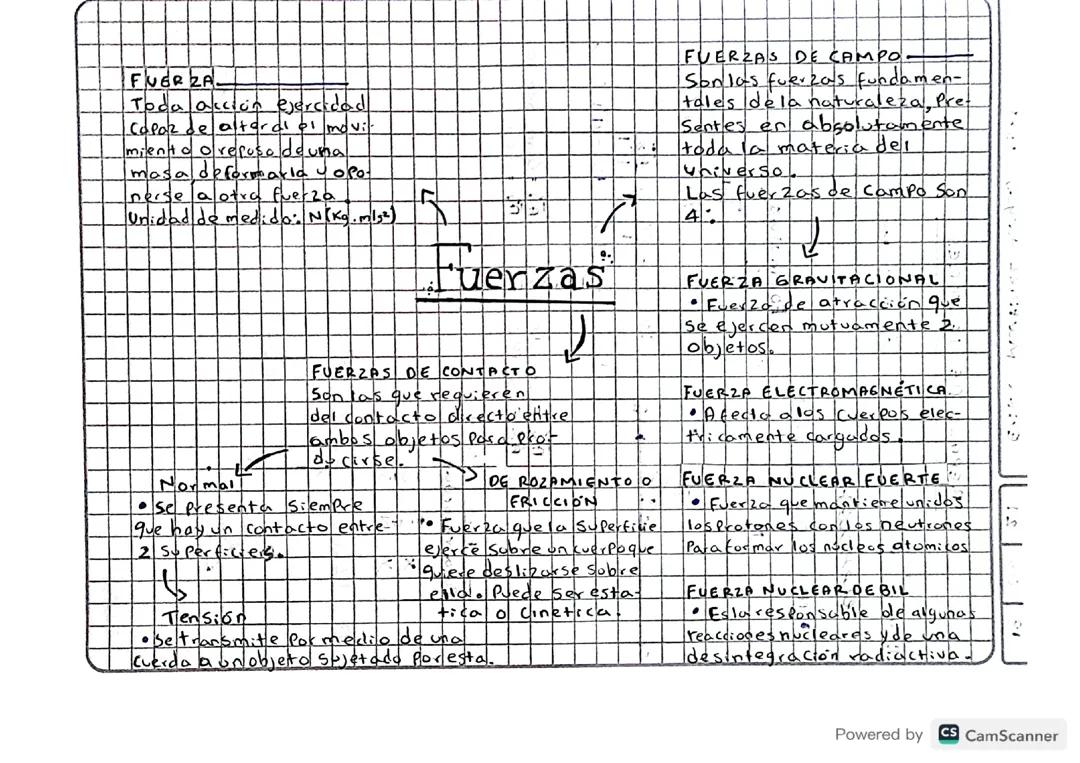 FUERZA
Toda acción ejercidad
capaz de alterar el movi-
miento o reposo de una
masa, deformarla y opo-
nerse a otra fuerza.
Unidad de medida: N(Kg.m/s²)
Fuerzas
FUERZAS DE CAMPO
Son las fuerzas fundamen-
tales de la naturaleza, Pre-
sentes en absolutamente
toda la materia del
universo.
Las fuerzas de campo son
4:
FUERZA GRAVITACIONAL
• Fuerza de atracción que
se ejercen mutuamente 2
objetos.
FUERZA ELECTROMAGNÉTICA
• Afecta a los cuerpos elec-
tricamente cargados.
FUERZA NUCLEAR FUERTE
• Fuerza que mantiene unidos
los protones con los neutrones
Para formar los núcleos atomicos
FUERZA NUCLEAR DEBIL
• Es la responsable de algunas
reacciones nucleares y de una
desintegración radiactiva.
FUERZAS DE CONTACTO
Son las que requieren
del contacto directo entre
ambos objetos para pro-
decirse.
Normal
• Se presenta siempre
que hay un contacto entre
2 superficies.
Tensión
• Se transmite por medio de una
cuerda a un objeto sujetado por esta.
DE ROZAMIENTO O
FRICCIÓN
• Fuerza que la superficie
ejerce sobre un cuerpo que
quiere deslizarse sobre
ella. Puede ser esta-
tica o cinetica.
Powered by CS CamScanner